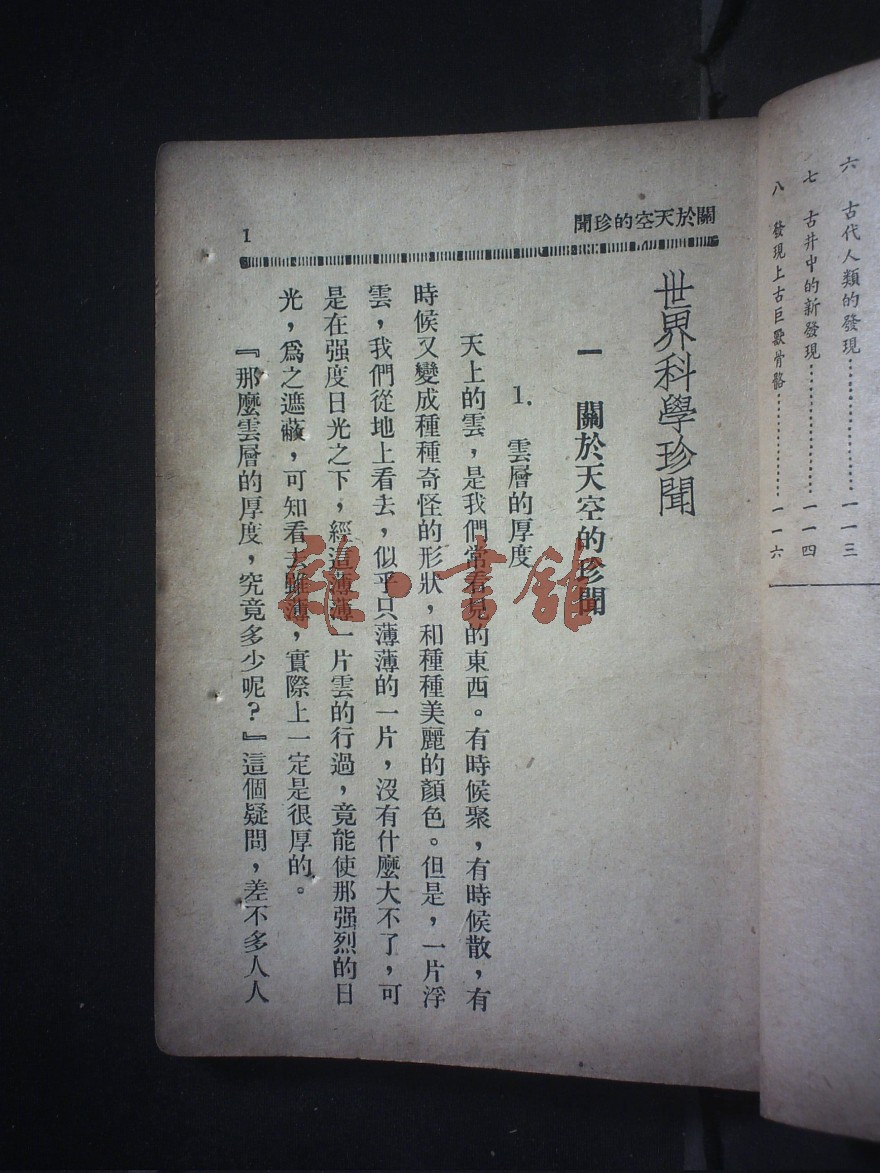 六　古代人類的發現…………………一一三
七　古井中的新發現…………………一一四
八　發現上古巨獸骨骼………………一一六
關於天空的珍聞
1
世界科學珍聞
一　關於天空的珍聞
1.　雲層的厚度
天上的雲，是我們常看見的東西。有時候聚，有時候散，有
時候又變成種種奇怪的形狀，和種種美麗的顏色。但是，一片浮
雲，我們從地上看去，似乎只薄薄的一片，沒有什麼大不了，可
是在强度日光之下，經這薄薄一片雲的行過，竟能使那强烈的日
光，爲之遮蔽，可知看去雖薄，實際上一定是很厚的。
『那麼雲層的厚度，究竟多少呢？』這個疑問，差不多人人
雜·書館